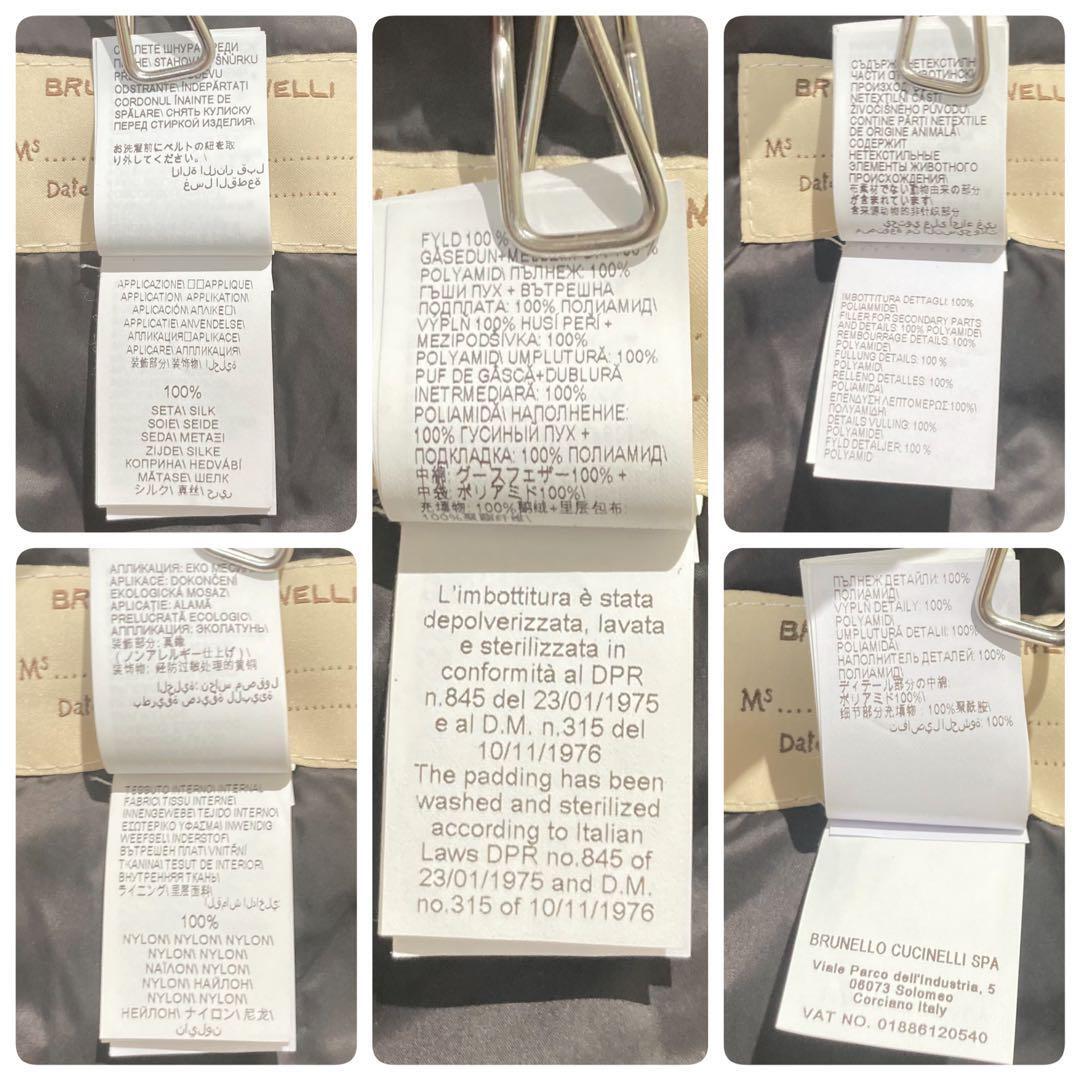 ШНУРА
STAHOVACÍ ŠŇŮRKU
ODSTRANTE\ ÎNDEPĂRTAȚI
CORDONUL ÎNAINTE DE
SPĂLARE\ СНЯТЬ КУЛИСКУ
ПЕРЕД СТИРКОЙ ИЗДЕЛИЯ\
お洗濯前にベルトの紐を取
り外してください。\
إزالة الزنار قبل
غسل القطعة
BRU NELLI
Ms
Date
APPLICAZIONE\ APPLIQUE\
APPLICATION\ APPLIKATION\
APLICACIÓN\ ΑΠΛΙΚΕ\
APPLICATIE\ ANVENDELSE\
АПЛИКАЦИЯ\ APLIKACE\
APLICARE\ АППЛИКАЦИЯ\
装飾部分\ 装饰物\ الحلية\
100%
SETA\ SILK
SOIE\ SEIDE
SEDA\ ΜΕΤΑΞΙ
ZIJDE\ SILKE
КОПРИНА\ HEDVÁBÍ
MĂTASE\ ШЕЛК
シルク\ 真丝\ حرير
АПЛИКАЦИЯ: ЕКО
APLIKACE: DOKONČENÍ
EKOLOGICKÁ MOSAZ\
APLICAȚIE: ALAMĂ
PRELUCRATĂ ECOLOGIC\
АППЛИКАЦИЯ: ЭКОЛАТУНЬ\
装飾部分: 真鍮
(ノンアレルギー仕上げ)\
装饰物: 经防过敏处理的黄铜\
الحلية: نحاس مصقول
بطريقة صديقة للبيئة
BR NELLI
Ms
Dat
TESSUTO INTERNO\ INTERNAL
FABRIC\ TISSU INTERNE\
INNENGEWEBE\ TEJIDO INTERNO\
ΕΣΩΤΕΡΙΚΟ ΥΦΑΣΜΑ\ INWENDIG
WEEFSEL\ INDERSTOF\
ВЪТРЕШЕН ПЛАТ\ VNITŘNÍ
TKANINA\ TESUT DE INTERIOR\
ВНУТРЕННЯЯ ТКАНЬ\
ライニング\ 里层面料\
القماش الداخلي
100%
NYLON\ NYLON\ NYLON\
NYLON\ NYLON\
ΝΑΪΛΟΝ\ NYLON\
NYLON\ НАЙЛОН\
NYLON\ NYLON\
НЕЙЛОН\ ナイロン\ 尼龙\
نايلون
FYLD 100 %
GÅSEDUN+ 100 %
POLYAMID\ ПЪЛНЕЖ: 100%
ГЪШИ ПУХ + ВЪТРЕШНА
ПОДПЛАТА: 100% ПОЛИАМИД\
VÝPLŇ 100% HUSÍ PEŘÍ +
MEZIPODŠÍVKA: 100%
POLYAMID\ UMPLUTURĂ: 100%
PUF DE GÂSCĂ+DUBLURĂ
INETRMEDIARĂ: 100%
POLIAMIDĂ\ НАПОЛНЕНИЕ:
100% ГУСИНЫЙ ПУХ +
ПОДКЛАДКА: 100% ПОЛИАМИД\
中綿: グースフェザー100% +
中袋: ポリアミド100%\
充填物: 100%鹅绒+里层包布:
L'imbottitura è stata
depolverizzata, lavata
e sterilizzata in
conformità al DPR
n.845 del 23/01/1975
e al D.M. n.315 del
10/11/1976
The padding has been
washed and sterilized
according to Italian
Laws DPR no.845 of
23/01/1975 and D.M.
no.315 of 10/11/1976
СЪДЪРЖ НЕТЕКСТИЛНИ
ЧАСТИ ОТ ЖИВОТИНСКИ
ПРОИЗХОД
NETEXTILNÍ ČÁSTI
ŽIVOČIŠNÉHO PŮVODU\
CONȚINE PĂRȚI NETEXTILE
DE ORIGINE ANIMALĂ\
СОДЕРЖИТ
НЕТЕКСТИЛЬНЫЕ
ЭЛЕМЕНТЫ ЖИВОТНОГО
ПРОИСХОЖДЕНИЯ\
布素材でない動物由来の部分
が含まれています\
含来源动物的非针织部分
يحتوي على أجزاء غير
BRU NELL
Ms
Date
IMBOTTITURA DETTAGLI: 100%
POLIAMMIDE\
FILLER FOR SECONDARY PARTS
AND DETAILS: 100% POLYAMIDE\
REMBOURRAGE DETAILS: 100%
POLYAMIDE\
FÜLLUNG DETAILS: 100 %
POLYAMID\
RELLENO DETALLES: 100%
POLIAMIDA\
ΕΠΕΝΔΥΣΗ ΛΕΠΤΟΜΕΡΩΣ:100%\
ΠΟΛΥΑΜΙΔΗ\
DETAILS VULLING: 100%
POLYAMIDE\
FYLD DETALJER: 100 %
POLYAMID
ПЪЛНЕЖ ДЕТАЙЛИ: 100%
ПОЛИАМИД\
VÝPLŇ DETAILY: 100%
POLYAMID\
UMPLUTURĂ DETALII: 100%
POLIAMIDĂ\
НАПОЛНИТЕЛЬ ДЕТАЛЕЙ: 100%
ПОЛИАМИД\
ディテール部分の中綿:
ポリアミド100%\
细节部分充填物: 100%聚酰胺\
تفاصيل الحشوة: 100%
Ms
Date
BRUNELLO CUCINELLI SPA
Viale Parco dell'Industria, 5
06073 Solomeo
Corciano Italy
VAT NO. 01886120540